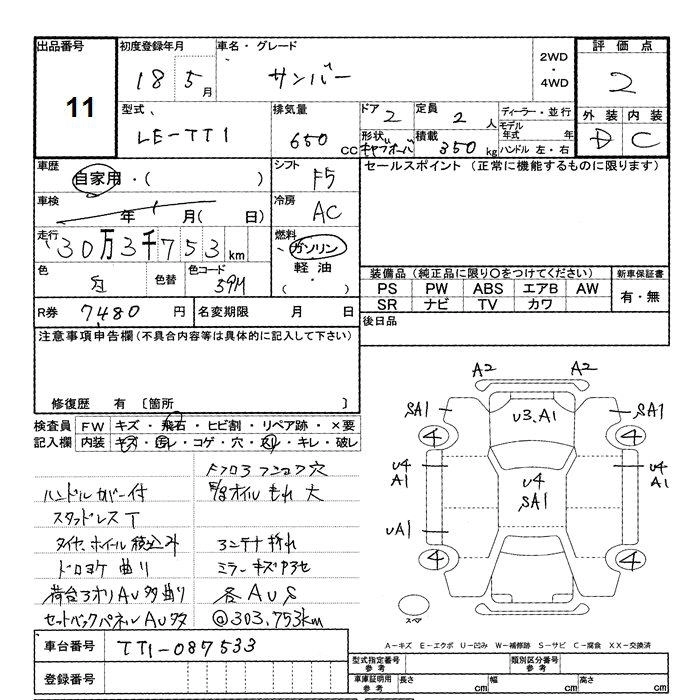 出品番号 11
初度登録年月 18 5月
車名・グレード サンバー
2WD・4WD
評価点 2
外装 D 内装 C
型式 LE-TT1
排気量 650cc
ドア 2
定員 2人
ディーラー・並行
モデル年式 年
ハンドル 左・右
形状
積載 350kg
車歴 自家用・( )
シフト F5
セールスポイント(正常に機能するものに限ります)
車検 年 月( 日)
冷房 AC
走行 30万3千753km
燃料 ガソリン
軽油
( ・ )
色
色替
色コード 39M
装備品(純正品に限り○をつけてください)
新車保証書
PS PW ABS エアB AW
有・無
SR ナビ TV カワ
R券 7,480円
名変期限 月 日
後日品
注意事項申告欄(不具合内容等は具体的に記入して下さい)
修復歴 有 〔箇所 〕
検査員記入欄
FW キズ・飛石・ヒビ割・リペア跡・×要
内装 キズ・汚レ・コゲ・穴・スレ・キレ・破レ
ハンドルカバー付
E/gオイルもれ 大
スタッドレスT
タイヤ、ホイール積込み
ドロヨケ曲り
ミラーキズ
荷台 アオリ AU多 曲り
各AUS
セットバックパネル AU多
@303,753km
車台番号 TT1-087533
登録番号
A2 A2
SA1 U3.A1 SA1
4 4
U4 A1 U4 SA1 U4 A1
UA1
4 4
スペア
A-キズ E-エクボ U-凹み W-補修跡 S-サビ C-腐食 XX-交換済
型式指定番号参考
類別区分番号参考
車庫証明用参考 長さ cm 幅 cm 高さ cm